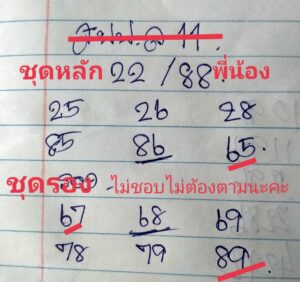 ชุดหลัก 22 / 88 พี่น้อง
25 26 28
85 86 65
ชุดรอง ไม่ชอบไม่ต้องตามนะคะ
67 68 69
78 79 89